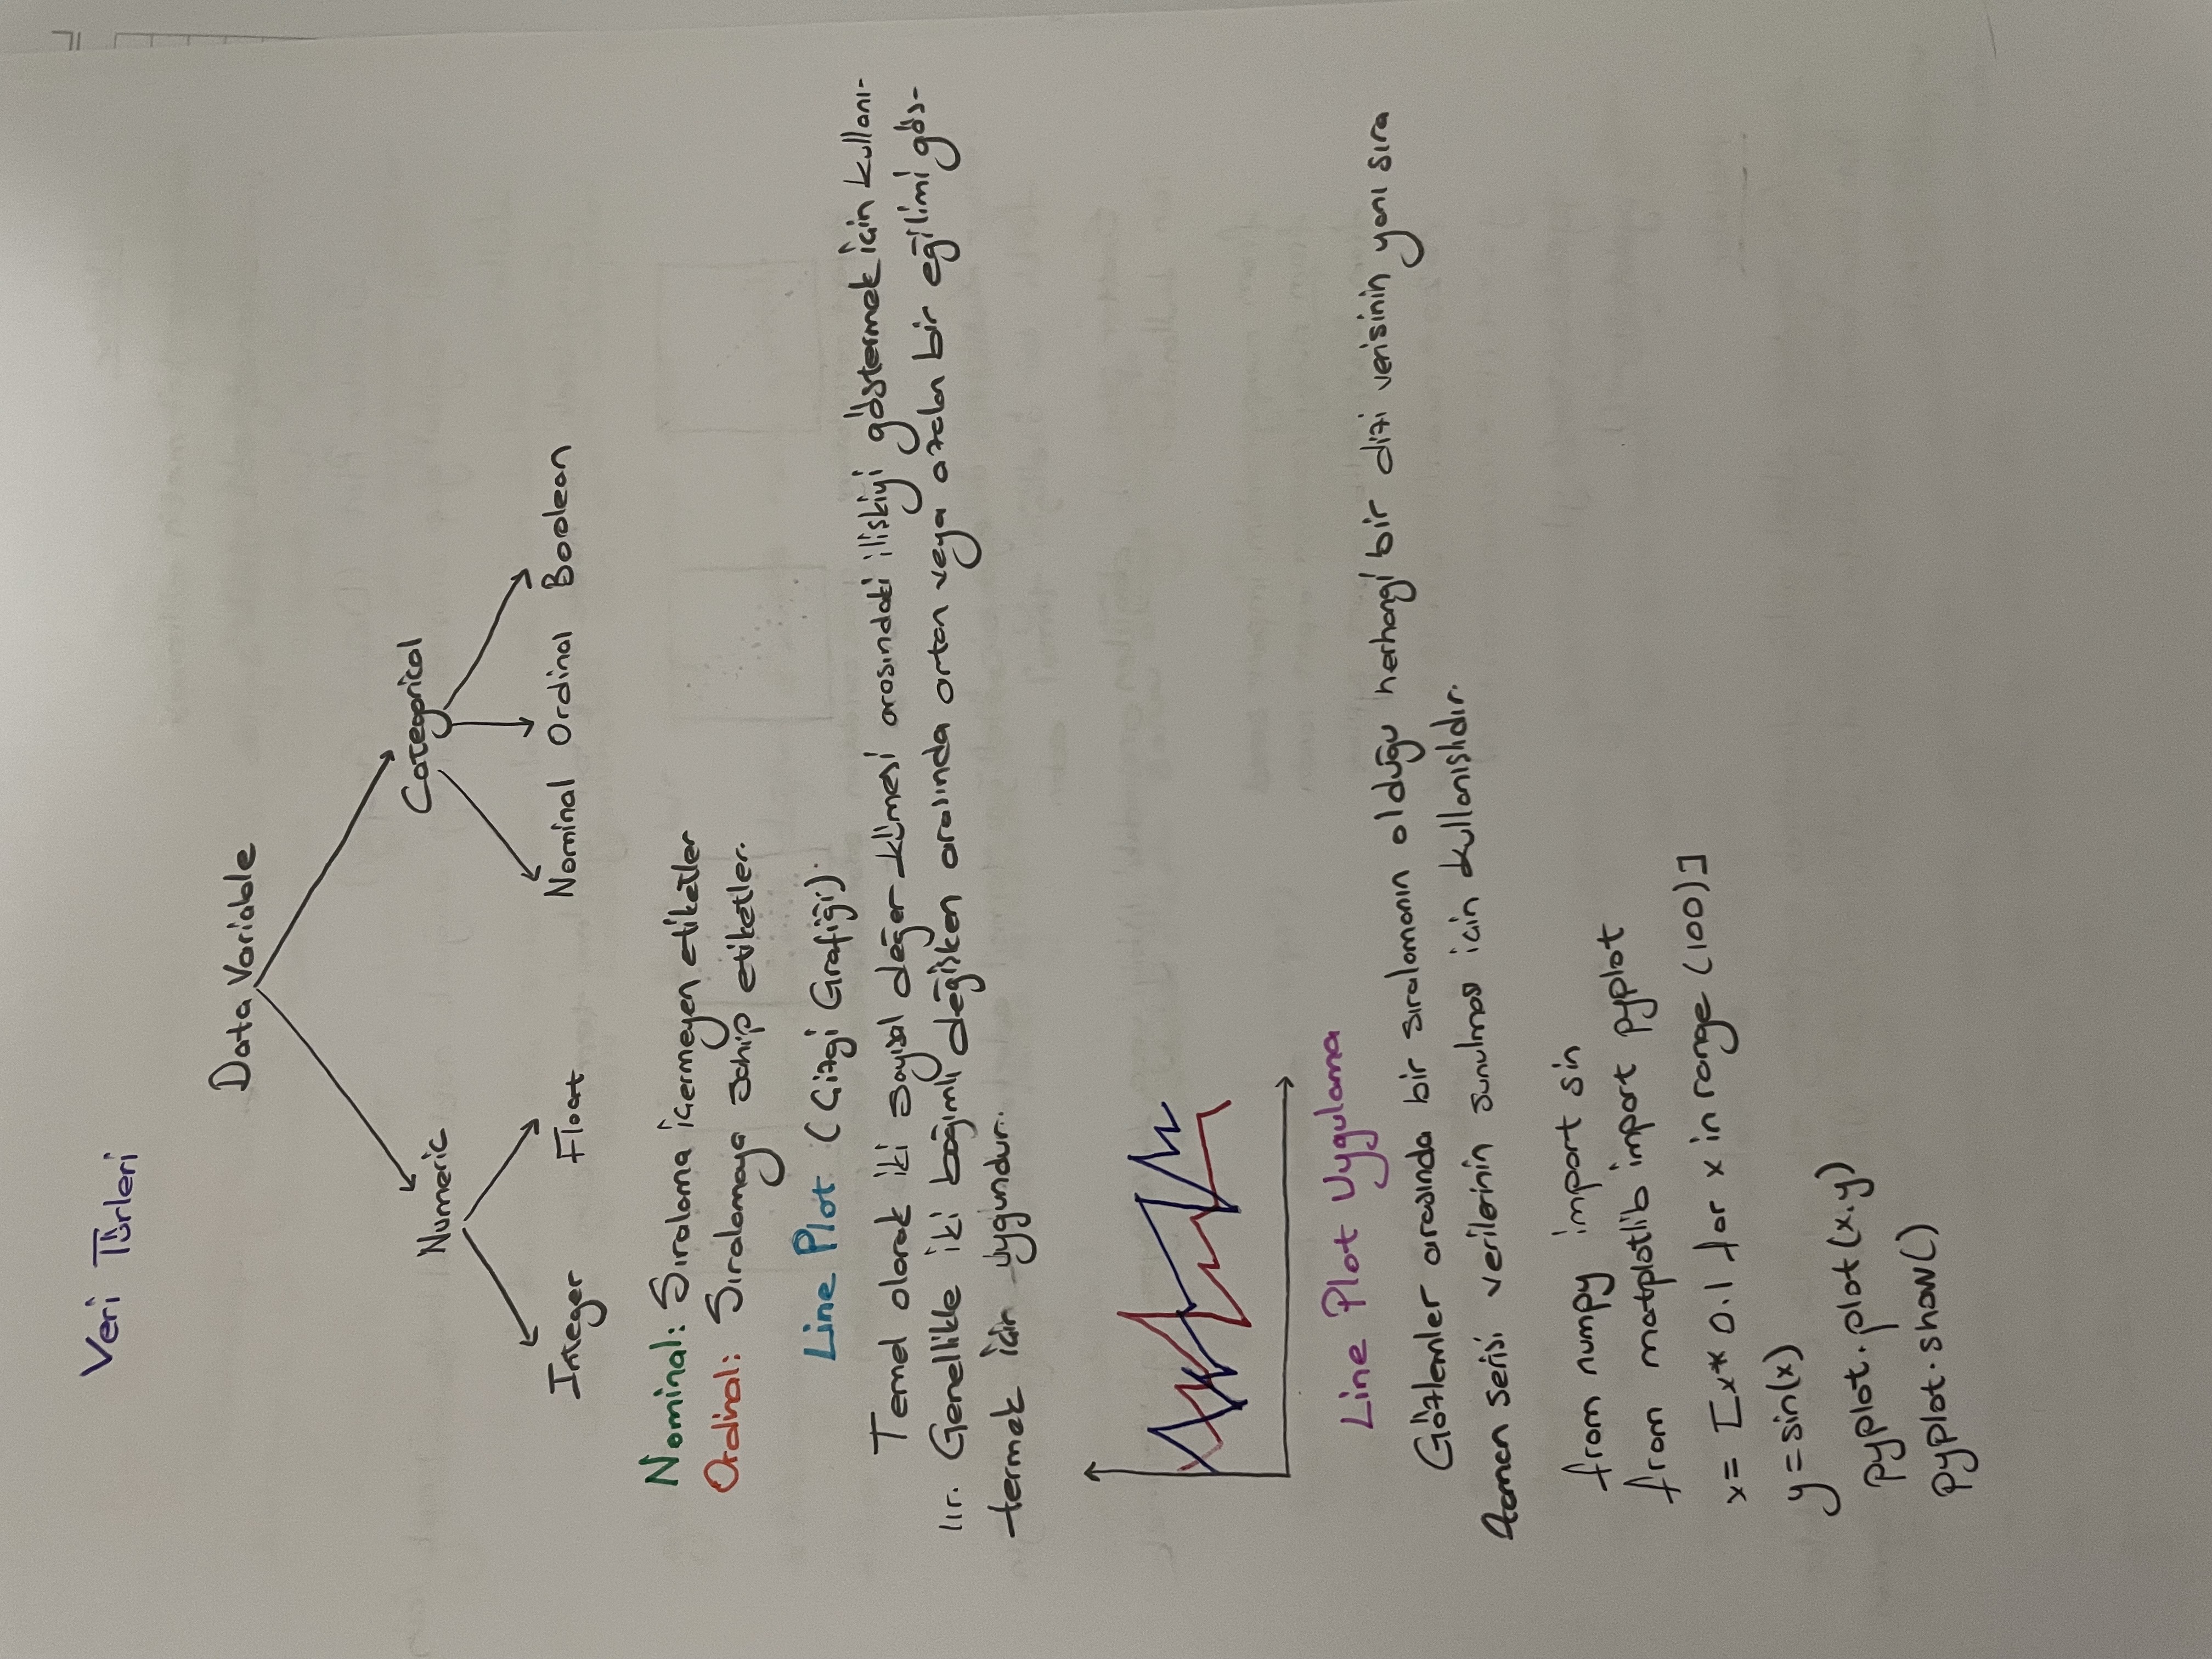 Veri Türleri
Data Variable
Numeric Categorical
Integer Float Nominal Ordinal Boolean
Nominal: Sıralama içermeyen etiketler
Ordinal: Sıralamaya sahip etiketler.
Line Plot (Çizgi Grafiği)
Temel olarak iki sayısal değer kümesi arasındaki ilişkiyi göstermek için kullanı-
lır. Genellikle iki bağımlı değişken arasında artan veya azalan bir eğilimi gös-
termek için uygundur.
Line Plot Uygulama
Gözlemler arasında bir sıralamanın olduğu herhangi bir dizi verisinin yanı sıra
zaman serisi verilerinin sunulması için kullanışlıdır.
from numpy import sin
from matplotlib import pyplot
x= [x* 0.1 for x in range (100)]
y = sin(x)
pyplot. plot (x,y)
pyplot. show()